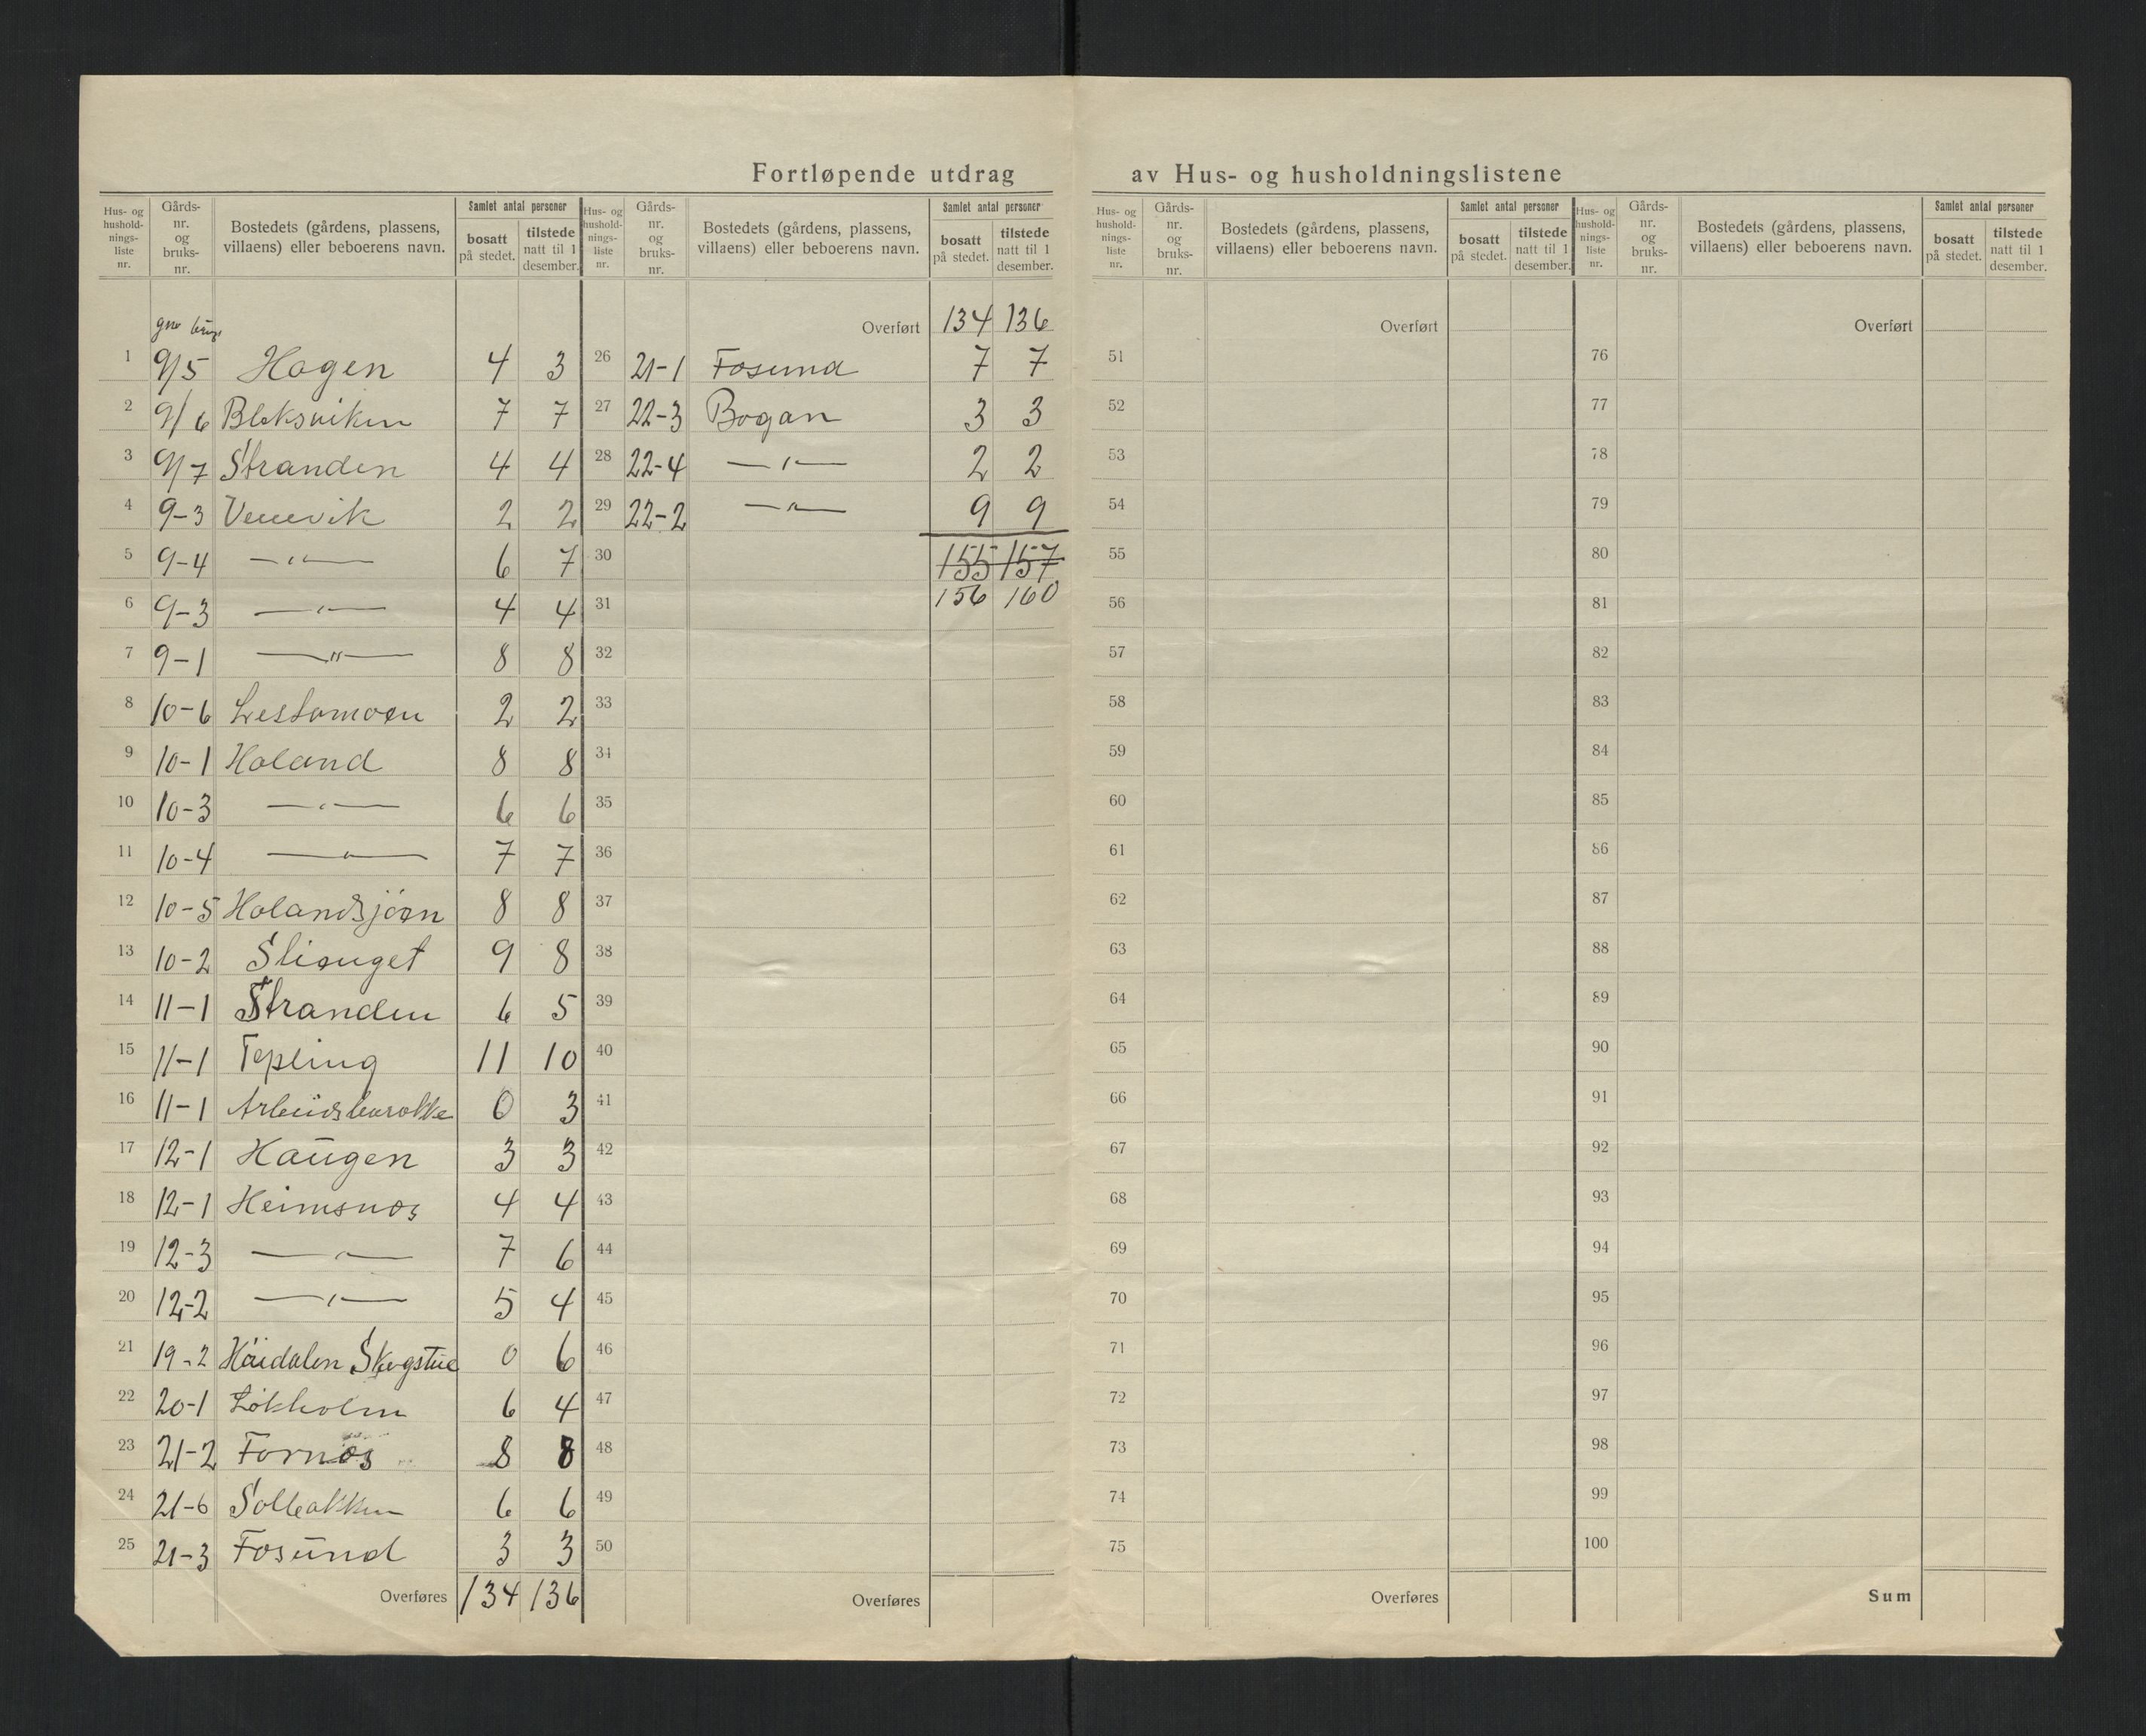 Fortløpende utdrag av Hus- og husholdningslistene
Hus- og hushold-nings-liste nr. Gårds-nr. og bruks-nr. Bostedets (gårdens, plassens, villaens) eller beboerens navn. Samlet antal personer bosatt på stedet. tilstede natt til 1 desember.
Hus- og hushold-nings-liste nr. Gårds-nr. og bruks-nr. Bostedets (gårdens, plassens, villaens) eller beboerens navn. Samlet antal personer bosatt på stedet. tilstede natt til 1 desember.
Hus- og hushold-nings-liste nr. Gårds-nr. og bruks-nr. Bostedets (gårdens, plassens, villaens) eller beboerens navn. Samlet antal personer bosatt på stedet. tilstede natt til 1 desember.
Hus- og hushold-nings-liste nr. Gårds-nr. og bruks-nr. Bostedets (gårdens, plassens, villaens) eller beboerens navn. Samlet antal personer bosatt på stedet. tilstede natt til 1 desember.
gnr
1 9/5 Hagen 4 3
2 9/6 Bleksviken 7 7
3 9/7 Stranden 4 4
4 9-3 Vennevik 2 2
5 9-4 —"— 6 7
6 9-3 —"— 4 4
7 9-1 —"— 8 8
8 10-6 Lestamoen 2 2
9 10-1 Haland 8 8
10 10-3 —"— 6 6
11 10-4 —"— 7 7
12 10-5 Halandsjøen 8 8
13 10-2 9 8
14 11-1 Stranden 6 5
15 11-1 Tepling 11 10
16 11-1 Arbeidsbarakke 0 3
17 12-1 Haugen 3 3
18 12-1 Heimsnes 4 4
19 12-3 —"— 7 6
20 12-2 —"— 5 4
21 19-2 Høidalen Skogstue 0 6
22 20-1 Løkholm 6 4
23 21-2 Fornes 8 8
24 21-6 Solbakken 6 6
25 21-3 Fosund 3 3
Overføres 134 136
Overført 134 136
26 21-1 Fosund 7 7
27 22-3 Bogan 3 3
28 22-4 —"— 2 2
29 22-2 —"— 9 9
30 155 157
31 156 160
32
33
34
35
36
37
38
39
40
41
42
43
44
45
46
47
48
49
50
Overføres
Overført
51
52
53
54
55
56
57
58
59
60
61
62
63
64
65
66
67
68
69
70
71
72
73
74
75
Overføres
Overført
76
77
78
79
80
81
82
83
84
85
86
87
88
89
90
91
92
93
94
95
96
97
98
99
100
Sum